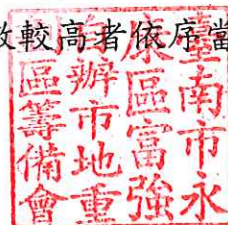 數較高者依序當
臺南市永
康區富強
自辦市地重
區籌備會